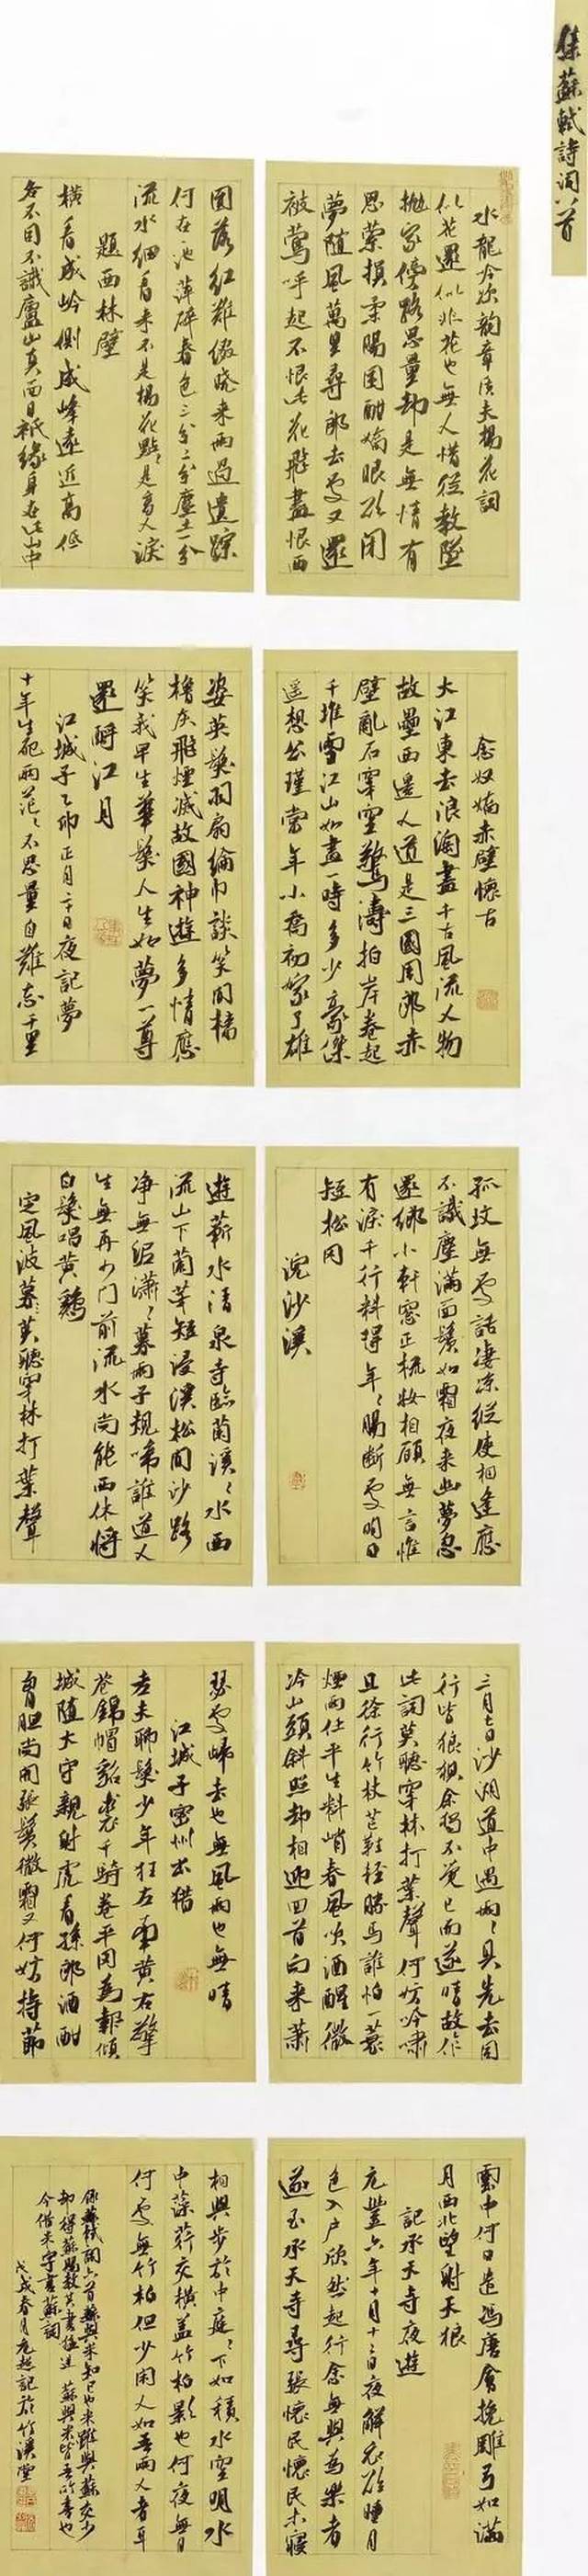 集蘇軾詩詞八首
水龍吟次韻章質夫楊花詞
似花還似非花也無人惜從教墜
抛家傍路思量却是無情有
思縈損柔腸困酣嬌眼欲開
夢隨風萬里尋郎去處又還
被鶯呼起不恨此花飛盡恨西
園落紅難綴曉来雨過遺踪
何在一池萍碎春色三分二分塵土一分
流水細看来不是楊花點點是离人淚
題西林壁
橫看成岭側成峰遠近高低
各不同不識廬山真面目衹緣身在此山中
念奴嬌赤壁懷古
大江東去浪淘盡千古風流人物
故壘西邊人道是三國周郎赤
壁亂石穿空驚濤拍岸卷起
千堆雪江山如畫一時多少豪傑
遥想公瑾當年小喬初嫁了雄
姿英發羽扇綸巾談笑間檣
櫓灰飛煙滅故國神遊多情應
笑我早生華髮人生如夢一尊
還酹江月
江城子乙卯正月二十日夜記夢
十年生死兩茫茫不思量自難忘千里
孤墳無處話凄凉縱使相逢應
不識塵滿面鬢如霜夜来幽夢忽
還鄉小軒窗正梳妝相顧無言惟
有淚千行料得年年腸斷處明月
短松岡
浣沙溪
遊蘄水清泉寺臨蘭溪溪水西
流山下蘭芽短浸溪松間沙路
净無泥瀟瀟暮雨子規啼誰道人
生無再少門前流水尚能西休將
白髮唱黄鷄
定風波莫聽穿林打葉聲
三月七日沙湖道中遇雨雨具先去同
行皆狼狽余獨不覺已而遂晴故作
此詞莫聽穿林打葉聲何妨吟嘯
且徐行竹杖芒鞋輕勝馬誰怕一蓑
煙雨任平生料峭春風吹酒醒微
冷山頭斜照却相迎回首向来蕭
瑟處歸去也無風雨也無晴
江城子密州出獵
老夫聊發少年狂左牽黄右擎
蒼錦帽貂裘千騎卷平岡為報傾
城隨太守親射虎看孫郎酒酣
胸胆尚開張鬢微霜又何妨持節
雲中何日遣馮唐會挽雕弓如滿
月西北望射天狼
記承天寺夜遊
元豐六年十月十二日夜解衣欲睡月
色入户欣然起行念無與為樂者
遂至承天寺尋張懷民懷民未寢
相與步於中庭庭下如積水空明水
中藻荇交橫盖竹柏影也何夜無月
何處無竹柏但少閑人如吾兩人者耳
錄蘇軾詞六首蘇與米知己也米雖與蘇交少
却得蘇賜教其書猛進蘇與米皆吾所喜也
今借米字書蘇詞
戊戌春月 記於竹溪堂